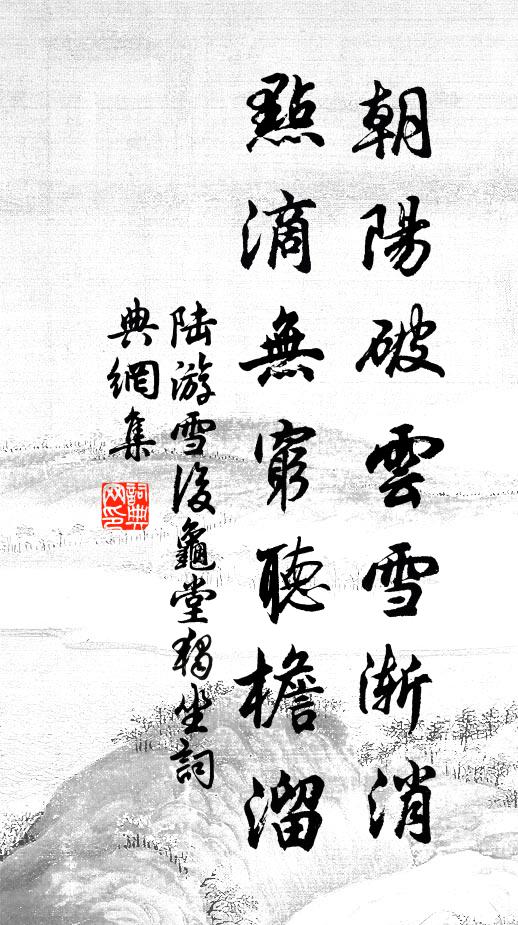 朝陽破雲雪漸消
點滴無窮聽檐溜
陸游雪後龜堂獨坐詞
典網集
詞典網印